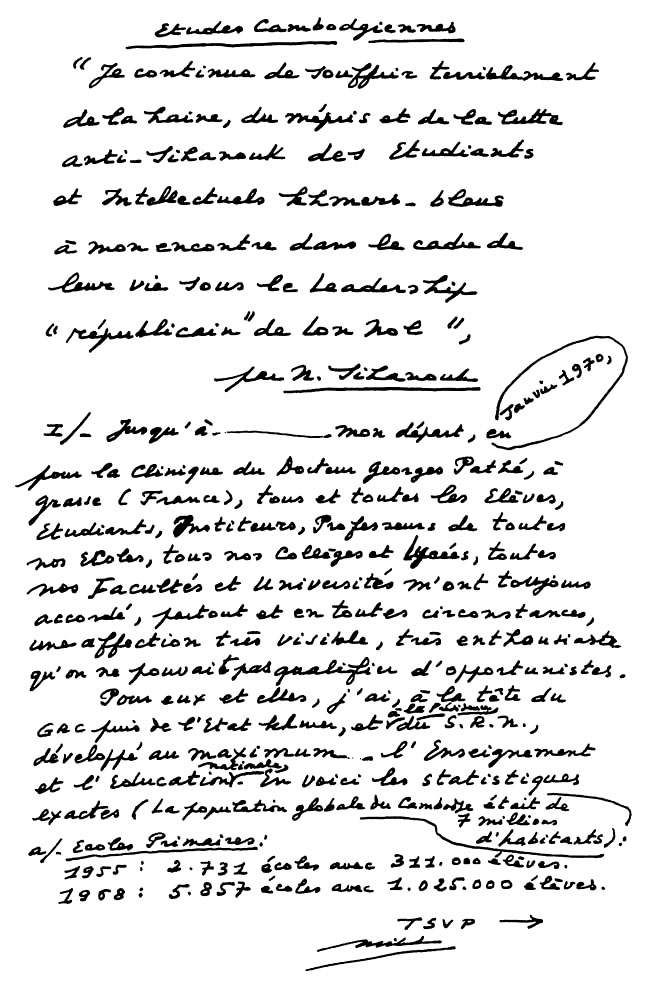 Etudes Cambodgiennes
"Je continue de souffrir terriblement
de la haine, du mépris et de la lutte
anti-Sihanouk des Etudiants
et Intellectuels khmers-bleus
à mon encontre dans le cadre de
leur vie sous le Leadership
"républicain" de Lon Nol",
par N. Sihanouk
Janvier 1970,
I/- Jusqu'à mon départ, en
pour la Clinique du Docteur Georges Pathé, à
Grasse (France), tous et toutes les Elèves,
Etudiants, Instituteurs, Professeurs de toutes
nos Ecoles, tous nos Collèges et Lycées, toutes
nos Facultés et Universités m'ont toujours
accordé, partout et en toutes circonstances,
une affection très visible, très enthousiaste
qu'on ne pouvait pas qualifier d'opportunistes.
Pour eux et elles, j'ai, à la tête du
GRC puis de l'Etat khmer, et à la Présidence du S.R.N.,
développé au maximum l'Enseignement
et l'Education nationale. En voici les statistiques
exactes (La population globale du Cambodge était de
7 millions
d'habitants):
a/- Ecoles Primaires:
1955 : 2.731 écoles avec 311.000 élèves.
1968 : 5.857 écoles avec 1.025.000 élèves.
TSVP →